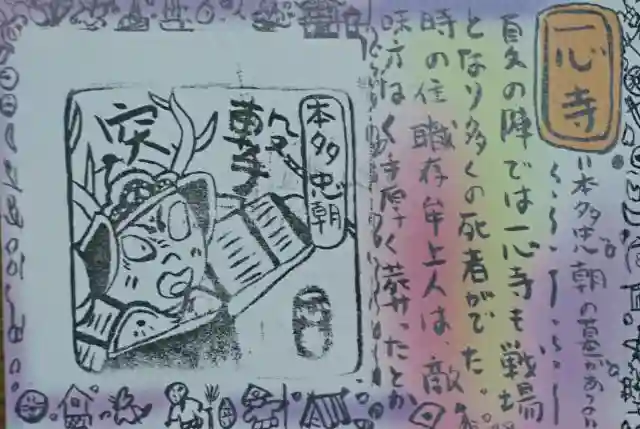 一心寺
本多忠朝の墓があるよ!!
夏の陣では一心寺も戦場
となり多くの死者がでた。
時の住職存牟上人は、敵
味方なく手厚く葬ったとか
本多忠朝
突撃